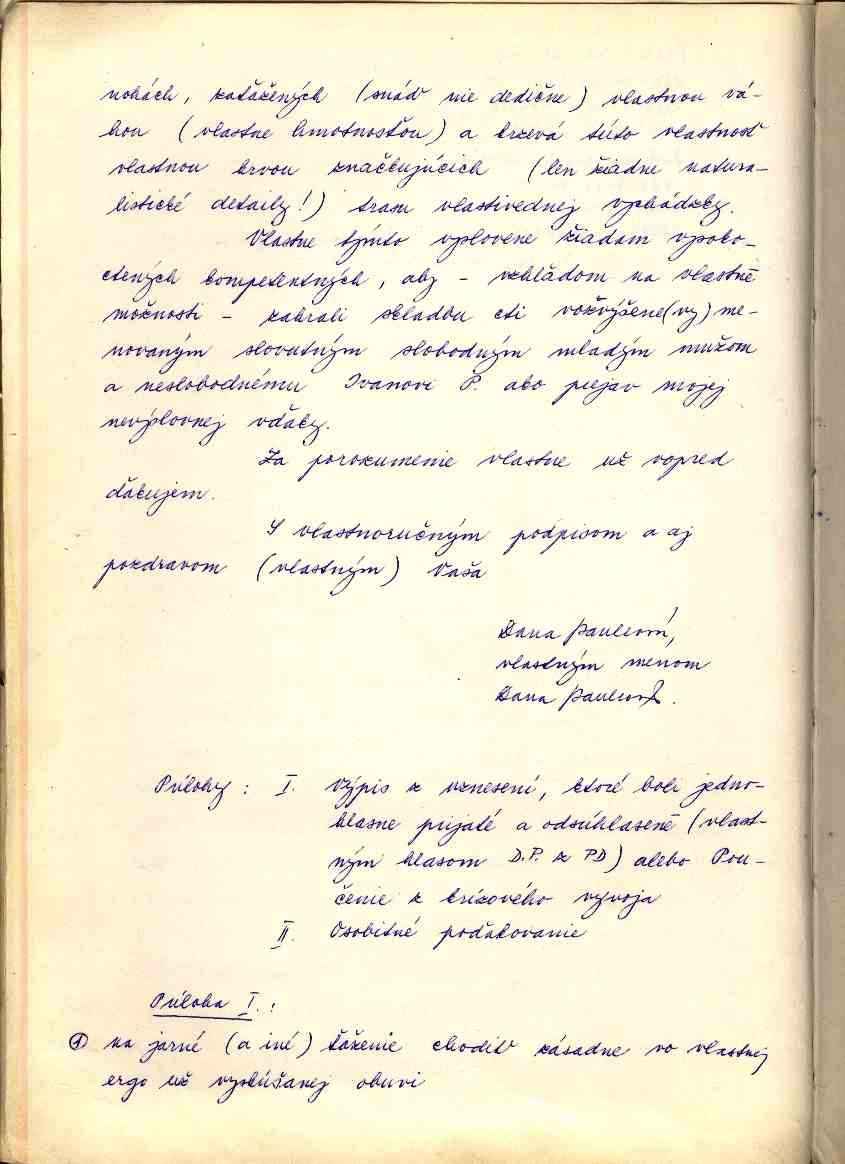 nohách, zaťažených (snáď nie dedične) vlastnou vá-
hou (vlastne hmotnosťou) a krzevá túto vlastnosť
vlastnou krvou značkujúcich (len žiadne natura-
listické detaily!) tram vlastivednej vychádzky.
Vlastne týmto úplovene žiadam vysoko-
ctených kompetentných, aby - vzhľadom na vlastné
možnosti - zahrali skladbu cti vozvýšene(vy)me-
novaným slovutným slobodným mladým mužom
a neslobodnému Ivanovi P. ako prejav mojej
nevýslovnej vďaky.
Za porozumenie vlastne už vopred
ďakujem.
S vlastnoručným podpisom a aj
pozdravom (vlastným) Vaša
Dana
vlastným menom
Dana
Prílohy: I. Výpis z uznesení, ktoré boli jedno-
hlasne prijaté a odsúhlasené (vlast-
ným hlasom D.P. z PD) alebo Pou-
čenie z krízového vývoja
II. Osobitné poďakovanie
Príloha I.:
① na jarné (a iné) ťaženie chodiť zásadne vo vlastnej
ergo už vyskúšanej obuvi